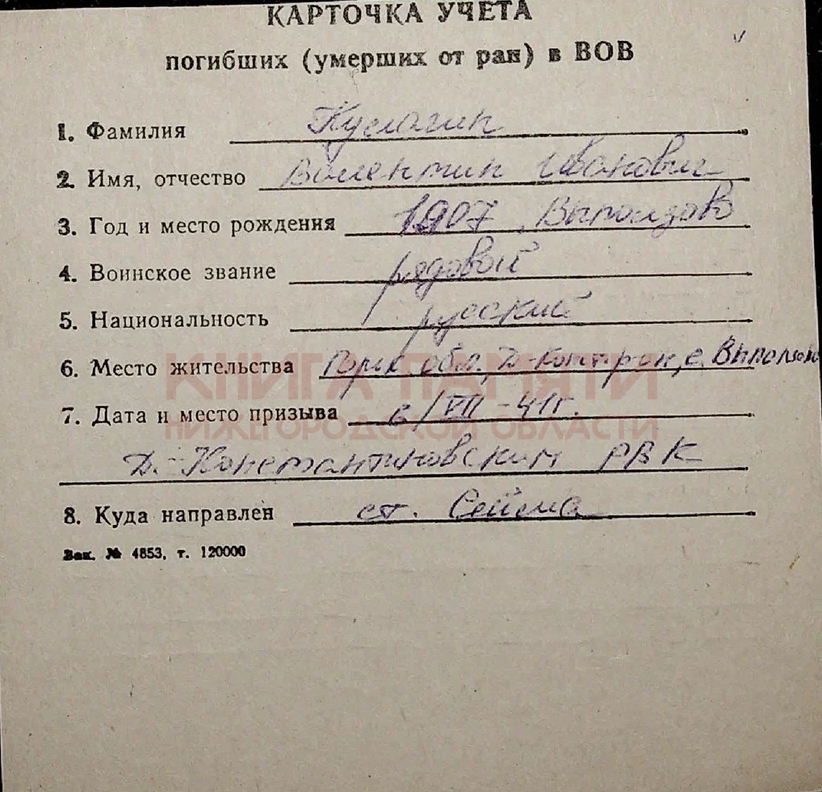 КАРТОЧКА УЧЕТА
погибших (умерших от ран) в ВОВ
1. Фамилия Кулагин
2. Имя, отчество Валентин Иванович
3. Год и место рождения 1907, Выползово
4. Воинское звание рядовой
5. Национальность русский
6. Место жительства Горьк. обл., Д-Конт. рон, с. Выползово
КНИГА ПАМЯТИ
7. Дата и место призыва 6/VII-41г.
НИЖЕГОРОДСКОЙ ОБЛАСТИ
Д-Константиновским РВК
8. Куда направлен ст. Сейма
Зак. № 4853, т. 120000